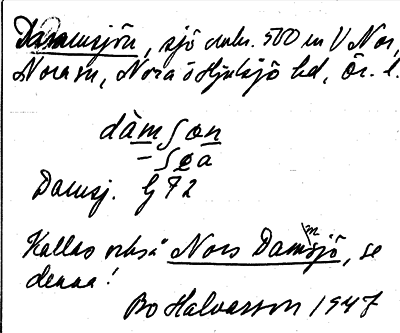 Dammsjön, sjö omkr. 500 m V Nor,
Nora sn, Nora o Hjulsjö hd, Ör. l.
dàmʃøn
– ʃøa
Damsj. G 72
Kallas också Nors Dammsjö, se
denna!
Bo Halvarsson 1947